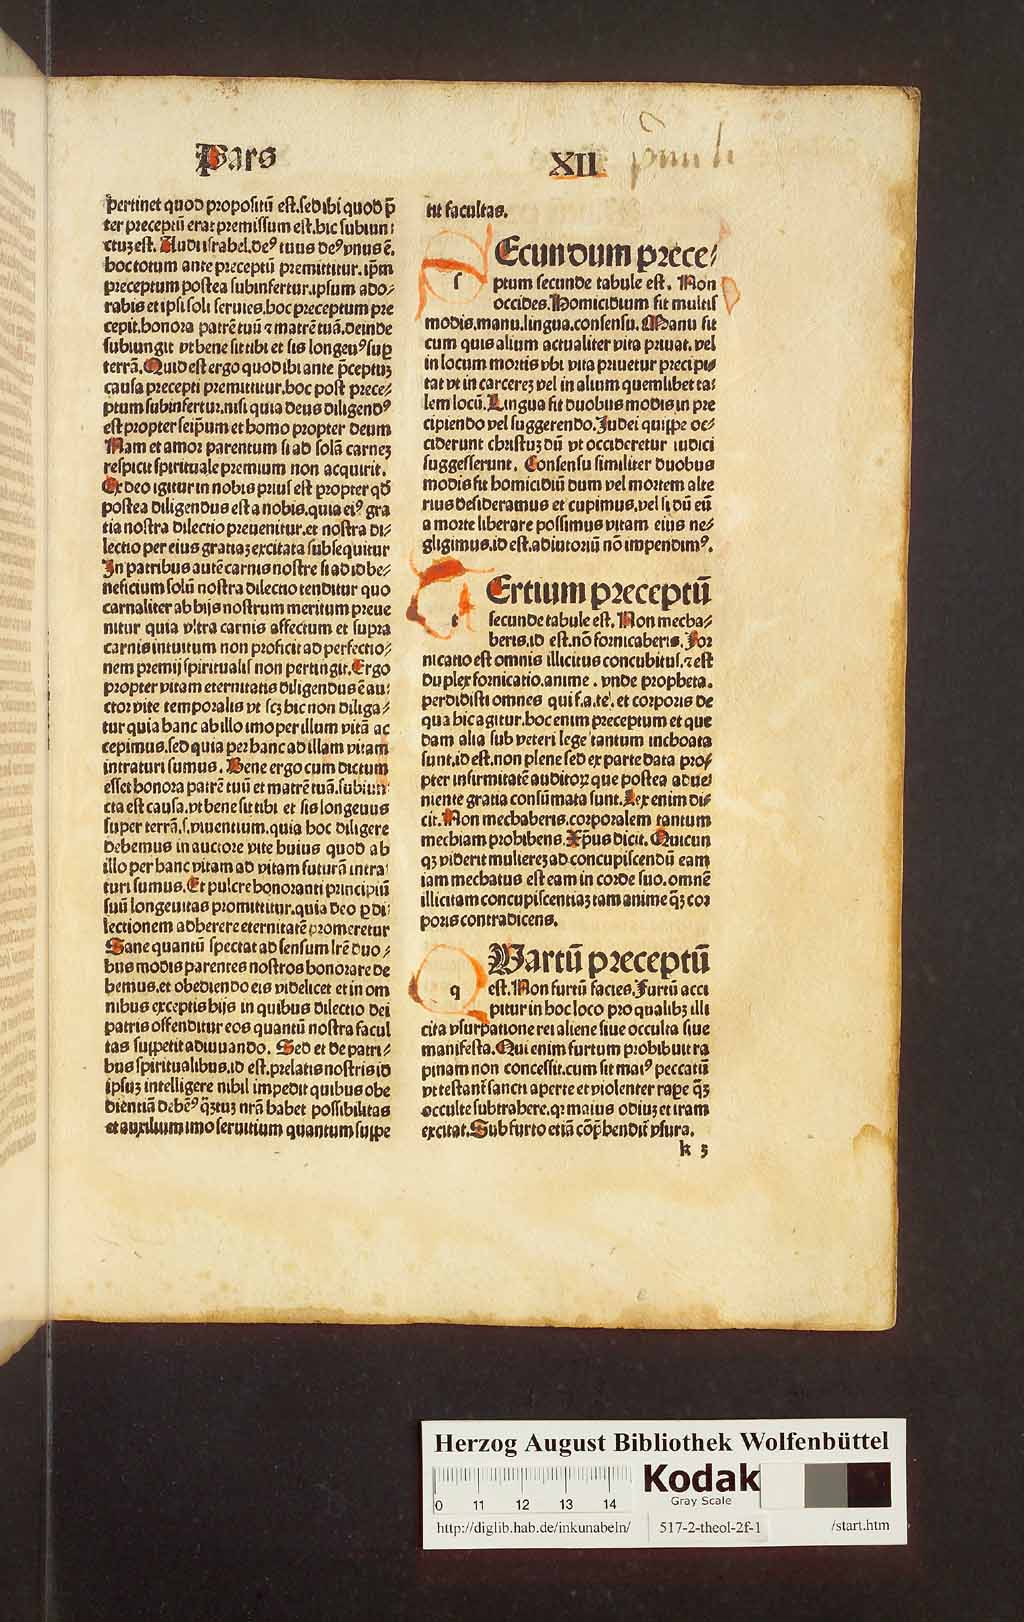 Pars
XII
pertinet quod propositū est.sed ibi quod p̄
ter preceptū erat premissum est.hic subiun⸗
ctuꝫ est. Audi israhel.deꝰ tuus deꝰ vnus ē.
hoc totum ante preceptū premittitur.ip̄m
preceptum postea subinfertur.ipsum ado⸗
rabis et ipsi soli seruies.hoc preceptum pre
cepit.honora patrē tuū ⁊ matrē tuā.deinde
subiungit vt bene sit tibi et sis longeuꝰ suꝑ
terrā.Quid est ergo quod ibi ante p̄ceptuꝫ
causa precepti premittitur.hoc post prece⸗
ptum subinfertur.nisi quia deus diligendꝰ
est propter seip̄um et homo propter deum
Nam et amor parentum si ad solā carneꝫ
respicit spirituale premium non acquirit.
Ex deo igitur in nobis prius est propter qd̄
postea diligendus est a nobis.quia eiꝰ gra
tia nostra dilectio preuenitur.et nostra di⸗
lectio per eius gratiaꝫ excitata subsequitur
In patribus autē carnis nostre si ad id be⸗
neficium solū nostra dilectio tenditur quo
carnaliter ab hijs nostrum meritum preue
nitur quia vltra carnis affectum et supra
carnis intuitum non proficit ad perfectio⸗
nem premij spiritualis non pertingit.Ergo
propter vitam eternitatis diligendus ē au⸗
ctor vite temporalis vt scꝫ hic non diliga⸗
tur quia hanc ab illo imo per illum vitā ac
cepimus.sed quia per hanc ad illam vitam
intraturi sumus. Bene ergo cum dictum
esset honora patrē tuū et matrē tuā.subiun⸗
cta est causa.vt bene sit tibi et sis longeuus
super terrā.s.viuentium.quia hoc diligere
debemus in auctore vite huius quod ab
illo per hanc vitam ad vitam futurā intra⸗
turi sumus.Et pulcre honoranti principiū
suū longeuitas promittitur.quia deo ꝑ di⸗
lectionem adherere eternitatē promeretur
Sane quantū spectat ad sensum lr̄e duo⸗
bus modis parentes nostros honorare de
bemus.et obediendo eis videlicet et in om
nibus exceptis hijs in quibus dilectio dei
patris offenditur eos quantū nostra facul
tas suppetit adiuuando. Sed et de patri⸗
bus spiritualibus.id est.prelatis nostris id
ipsuꝫ intelligere nihil impedit quibus obe
dientiā debēꝰ q̄ꝫtuꝫ nr̄a habet possibilitas
et auxilium imo seruitium quantum suppe
tit facultas.
s
Ecundum prece⸗
ptum secunde tabule est. Non
occides.Homicidium fit multis
modis.manu.lingua.consensu.Manu fit
cum quis alium actualiter vita priuat.vel
in locum mortis vbi vita priuetur precipi⸗
tat vt in carcereꝫ vel in alium quemlibet ta⸗
lem locū.Lingua fit duobus modis in pre
cipiendo vel suggerendo.Iudei quippe oc⸗
ciderunt christuꝫ dū vt occideretur iudici
suggesserunt. Consensu similiter duobus
modis fit homicidiū dum vel mortem alte
rius desideramus et cupimus.vel si dū eū
a morte liberare possimus vitam eius ne⸗
gligimus.id est.adiutoriū nō impendimꝰ.
t
Ertium preceptū
secunde tabule est. Non mecha⸗
beris.id est.nō fornicaberis.For
nicatio est omnis illicitus concubitus.⁊ est
duplex fornicatio.anime . vnde propheta.
perdidisti omnes qui f.a.te. et corporis de
qua hic agitur.hoc enim preceptum et que
dam alia sub veteri lege tantum inchoata
sunt.id est.non plene sed ex parte data pro⸗
pter infirmitatē auditoꝝ que postea adue⸗
niente gratia consūmata sunt.Lex enim di⸗
cit.Non mechaberis.corporalem tantum
mechiam prohibens.Xp̄us dicit. Quicun
qꝫ viderit muliereꝫ ad concupiscendū eam
iam mechatus est eam in corde suo.omnē
illicitam concupiscentiaꝫ tam anime q̄ꝫ cor
poris contradicens.
q
Uartū preceptū
est.Non furtū facies.Furtū acci
pitur in hoc loco pro qualibꝫ illi
cita vsurpatione rei aliene siue occulta siue
manifesta.Qui enim furtum prohibuit ra
pinam non concessit.cum sit maiꝰ peccatū
vt testant᷑ sancti aperte et violenter rape q̄ꝫ
occulte subtrahere.qꝫ maius odiuꝫ et iram
excitat.Sub furto etiā cōp̄hendit᷑ vsura.
k 3
Herzog August Bibliothek Wolfenbüttel
Kodak
Gray Scale
0 11 12 13 14
http://diglib.hab.de/inkunabeln/
517-2-theol-2f-1
/start.htm